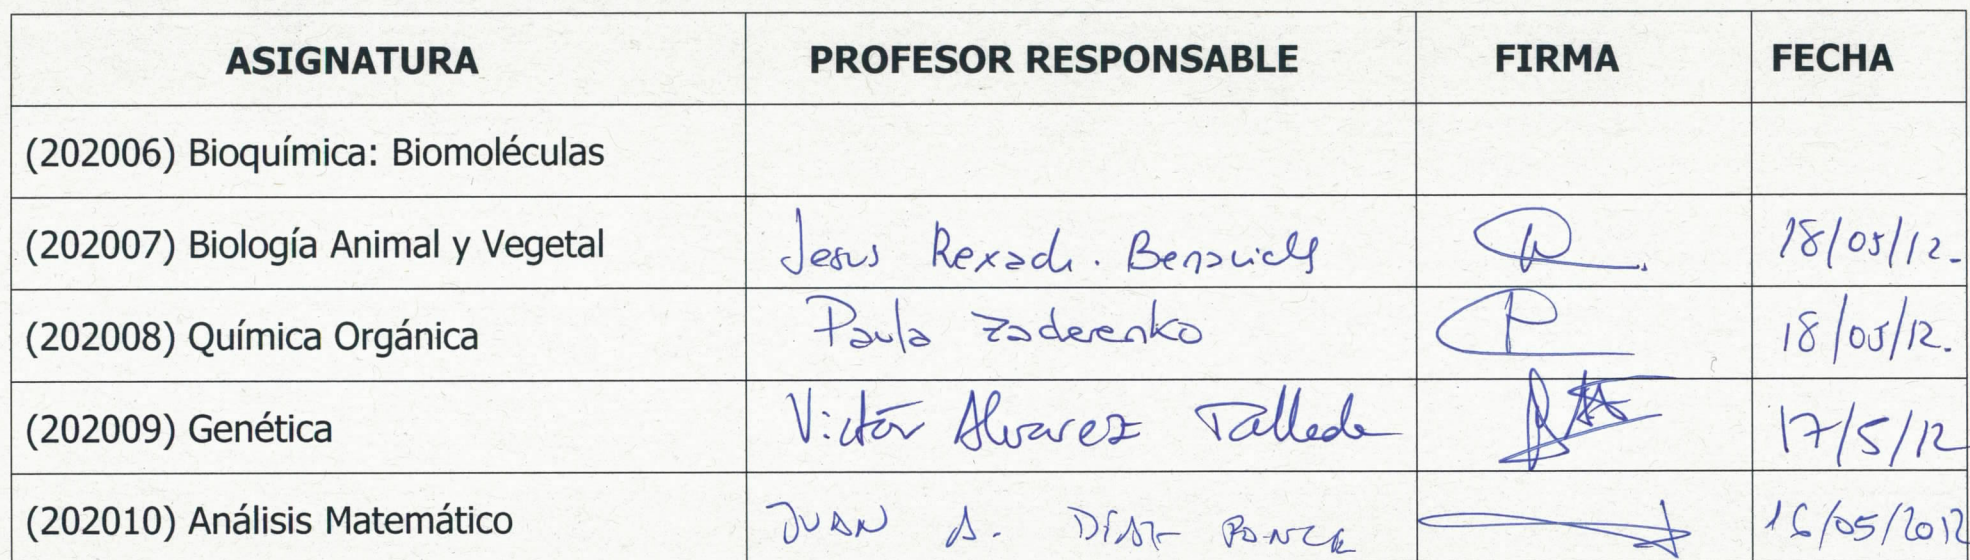 ASIGNATURA PROFESOR RESPONSABLE FIRMA FECHA
(202006) Bioquímica: Biomoléculas
(202007) Biología Animal y Vegetal Jesus Rexach. 18/05/12.
(202008) Química Orgánica Paula Zaderenko 18/05/12.
(202009) Genética Victor Alvarez 17/5/12
(202010) Análisis Matemático JUAN A. DÍAZ PONCE 16/05/2012